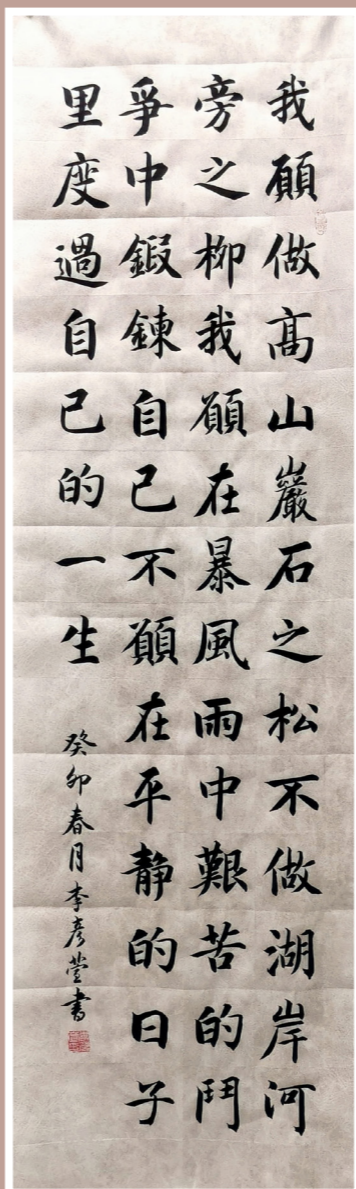 我願做高山巖石之松不做湖岸河
旁之柳我願在暴風雨中艱苦的鬥
爭中鍜鍊自己不願在平靜的日子
里度過自己的一生
癸卯春月李彥萱書